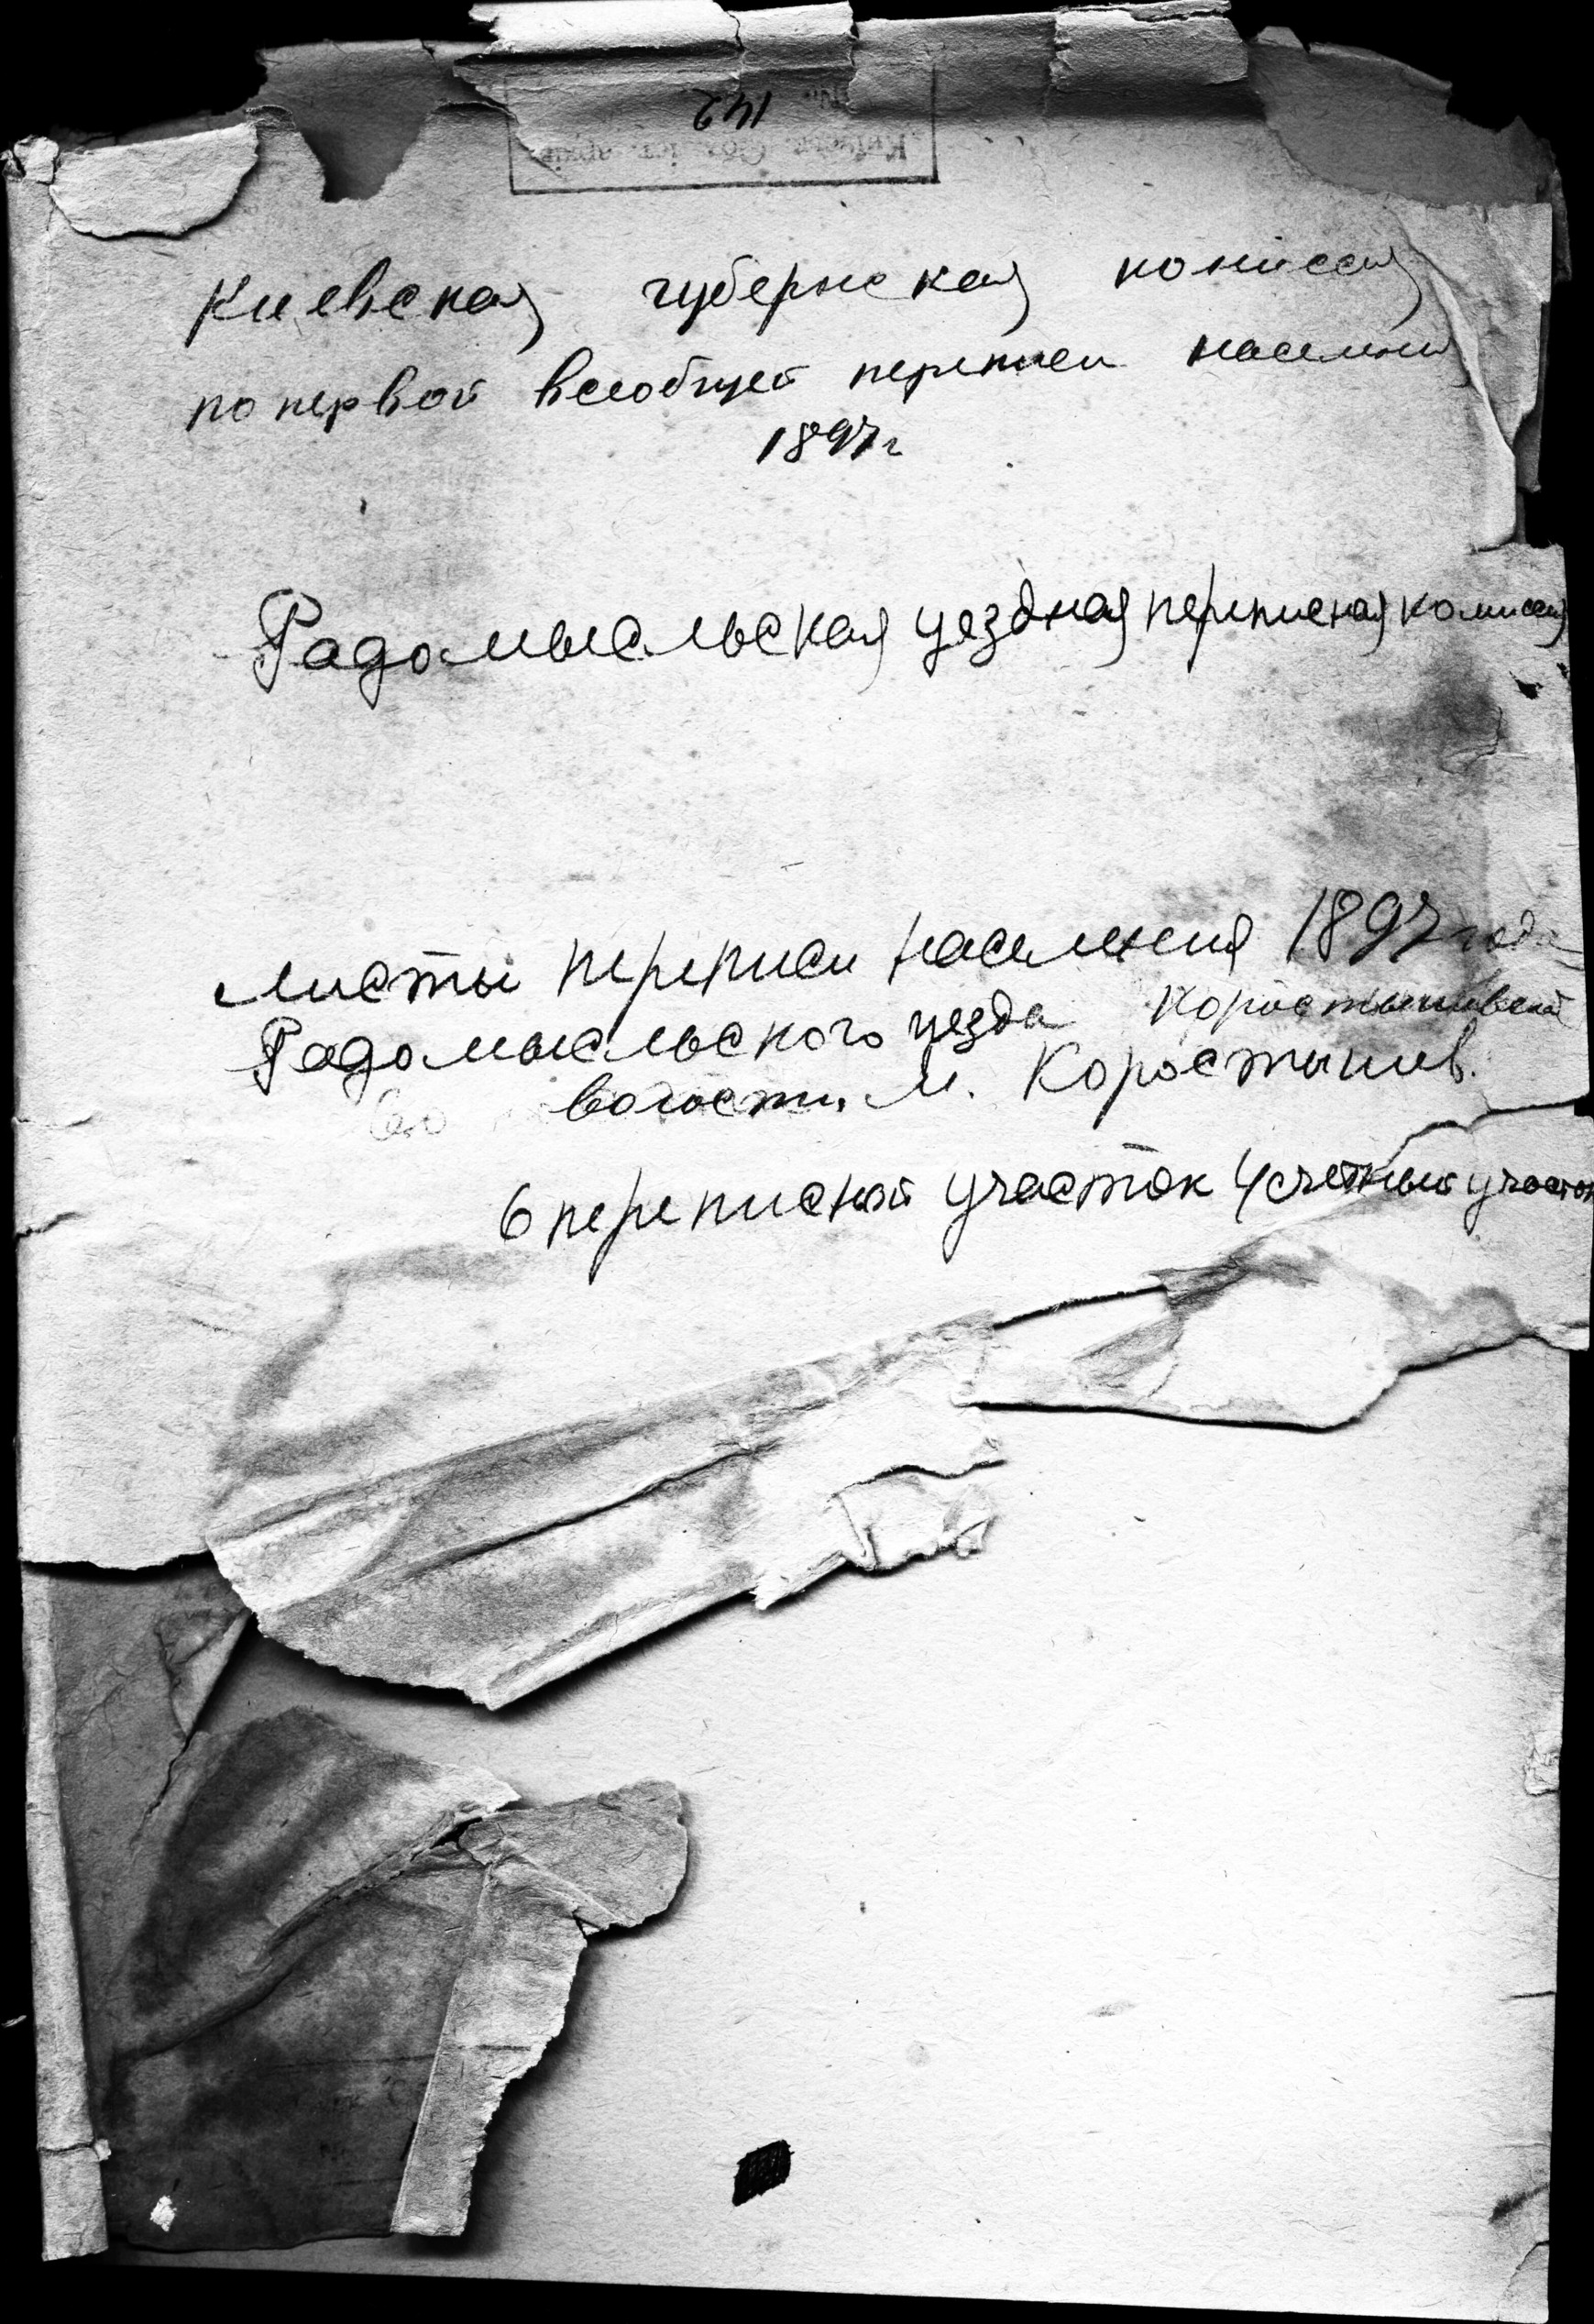 142
Киевская губернская комиссия
по первой всеобщей переписи населения
1897 г
Радомысльская уездная переписная комиссия
Листы переписи населения 1897 года
Радомысльского уезда Коростышевской
волости м. Коростышев.
6 переписной участок 4 счетный участок